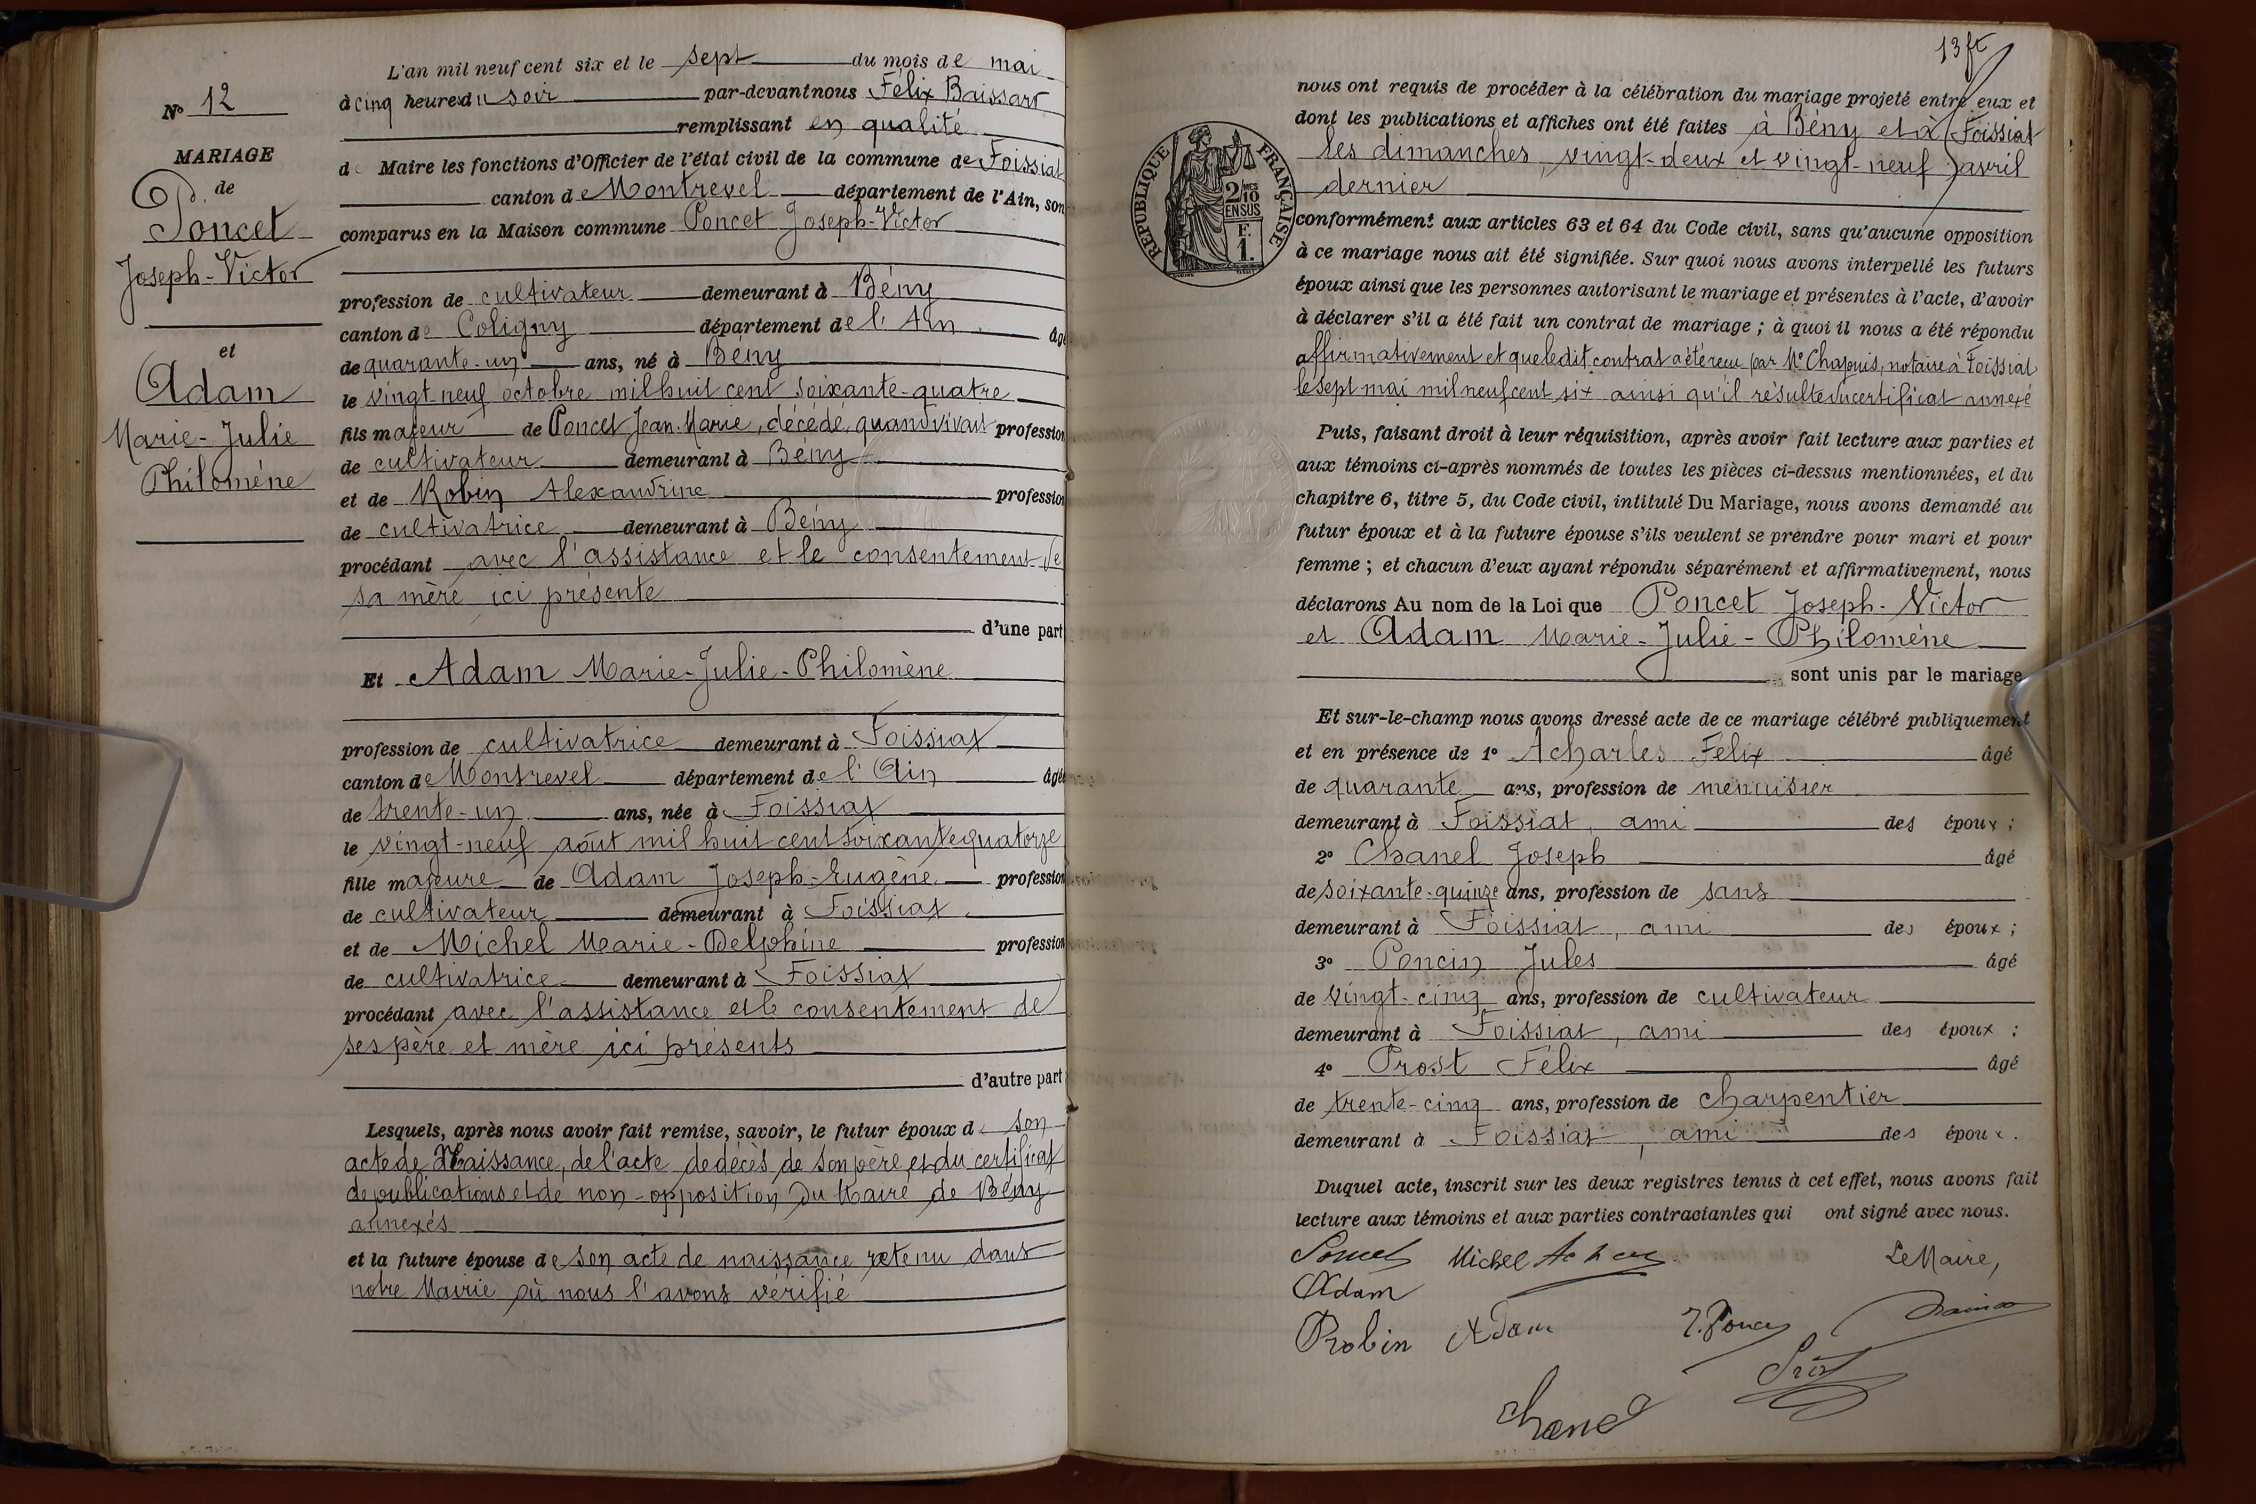 N° 12
MARIAGE
de
Poncet
Joseph-Victor
et
Adam
Marie-Julie
Philomène
L'an mil neuf cent six et le sept du mois de mai
à cinq heures du soir par-devant nous Félix Baissard
remplissant en qualité
de Maire les fonctions d'Officier de l'état civil de la commune de Foissiat
canton de Montrevel département de l'Ain, son
comparus en la Maison commune Poncet Joseph-Victor
profession de cultivateur demeurant à Bény
canton de Coligny département de l'Ain âgé
de quarante-un ans, né à Bény
le vingt-neuf octobre mil huit cent soixante-quatre
fils majeur de Poncet Jean-Marie, décédé, quand vivait profession
de cultivateur demeurant à Bény
et de Robin Alexandrine profession
de cultivatrice demeurant à Bény
procédant avec l'assistance et le consentement de
sa mère ici présente
d'une part
Et Adam Marie-Julie-Philomène
profession de cultivatrice demeurant à Foissiat
canton de Montrevel département de l'Ain âgée
de trente-un ans, née à Foissiat
le vingt-neuf août mil huit cent soixante quatorze
fille majeure de Adam Joseph-Eugène profession
de cultivateur demeurant à Foissiat
et de Michel Marie-Delphine profession
de cultivatrice demeurant à Foissiat
procédant avec l'assistance et le consentement de
ses père et mère ici présents
d'autre part
Lesquels, après nous avoir fait remise, savoir, le futur époux de son
acte de Naissance, de l'acte de décès de son père et du certificat
de publications et de non-opposition du Maire de Bény
annexés
et la future épouse de son acte de naissance retenu dans
notre Mairie où nous l'avons vérifié
13 ft
RÉPUBLIQUE FRANÇAISE
2/10
EN SUS
F.
1.
nous ont requis de procéder à la célébration du mariage projeté entre eux et
dont les publications et affiches ont été faites à Bény et à Foissiat
les dimanches vingt-deux et vingt-neuf avril
dernier
conformément aux articles 63 et 64 du Code civil, sans qu'aucune opposition
à ce mariage nous ait été signifiée. Sur quoi nous avons interpellé les futurs
époux ainsi que les personnes autorisant le mariage et présentes à l'acte, d'avoir
à déclarer s'il a été fait un contrat de mariage ; à quoi il nous a été répondu
affirmativement et que ledit contrat a été reçu par Me Chapuis, notaire à Foissiat
le sept mai mil neuf cent six ainsi qu'il résulte du certificat annexé
Puis, faisant droit à leur réquisition, après avoir fait lecture aux parties et
aux témoins ci-après nommés de toutes les pièces ci-dessus mentionnées, et du
chapitre 6, titre 5, du Code civil, intitulé Du Mariage, nous avons demandé au
futur époux et à la future épouse s'ils veulent se prendre pour mari et pour
femme ; et chacun d'eux ayant répondu séparément et affirmativement, nous
déclarons Au nom de la Loi que Poncet Joseph-Victor
et Adam Marie-Julie-Philomène
sont unis par le mariage
Et sur-le-champ nous avons dressé acte de ce mariage célébré publiquement
et en présence de 1° Acharles Félix âgé
de quarante ans, profession de menuisier
demeurant à Foissiat, ami des époux ;
2° Chanel Joseph âgé
de soixante-quinze ans, profession de sans
demeurant à Foissiat, ami des époux ;
3° Poncin Jules âgé
de vingt-cinq ans, profession de cultivateur
demeurant à Foissiat, ami des époux ;
4° Prost Félix âgé
de trente-cinq ans, profession de charpentier
demeurant à Foissiat, ami des époux.
Duquel acte, inscrit sur les deux registres tenus à cet effet, nous avons fait
lecture aux témoins et aux parties contractantes qui ont signé avec nous.
Poncet Michel Le Maire,
Adam
Robin Adam
Chanel